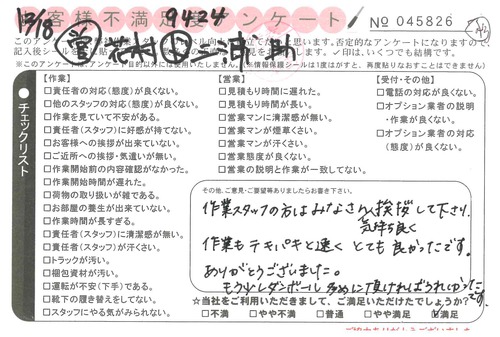 お客様不満足度アンケート
12/18 営 花村 作 三浦 助
9424
No 045826
このアンケート
否定的なアンケートになりますので、
記入後シールを
思います。✓印は、いくつでも結構です。
※このアンケートは、アンケート目的以外には使用いたしません。(※情報保護シールは1度はがすと、再度貼りなおすことはできません)
チェックリスト
【作業】
□責任者の対応(態度)が良くない。
□他のスタッフの対応(態度)が良くない。
□作業を見ていて不安がある。
□責任者(スタッフ)に好感が持てない。
□お客様への挨拶が出来ていない。
□ご近所への挨拶・気遣いが無い。
□作業開始前の内容確認がなかった。
□作業開始時間が遅れた。
□荷物の取り扱いが雑である。
□お部屋の養生が出来ていない。
□作業時間が長すぎる。
□責任者(スタッフ)に清潔感が無い。
□責任者(スタッフ)が汗くさい。
□トラックが汚い。
□梱包資材が汚い。
□運転が不安(下手)である。
□靴下の履き替えをしてない。
□スタッフにやる気がみられない。
【営業】
□見積もり時間に遅れた。
□見積もり時間が長い。
□営業マンに清潔感が無い。
□営業マンが煙草くさい。
□営業マンが汗くさい。
□営業態度が良くない。
□営業の説明と作業が一致してない。
【受付・その他】
□電話の対応が良くない。
□オプション業者の説明
・作業が良くない。
□オプション業者の対応
(態度)が良くない。
その他、ご意見・ご要望等ありましたらお書き下さい。
作業スタッフの方はみなさん挨拶して下さり、
気持ち良く
作業もテキパキと速く とても良かったです。
ありがとうございました。
もう少しダンボール多めに頂ければうれしかったです。
☆当社をご利用いただきまして、ご満足いただけたでしょうか?
□不満 □やや不満 □普通 □やや満足 ☑満足
ご協力ありがとうございました